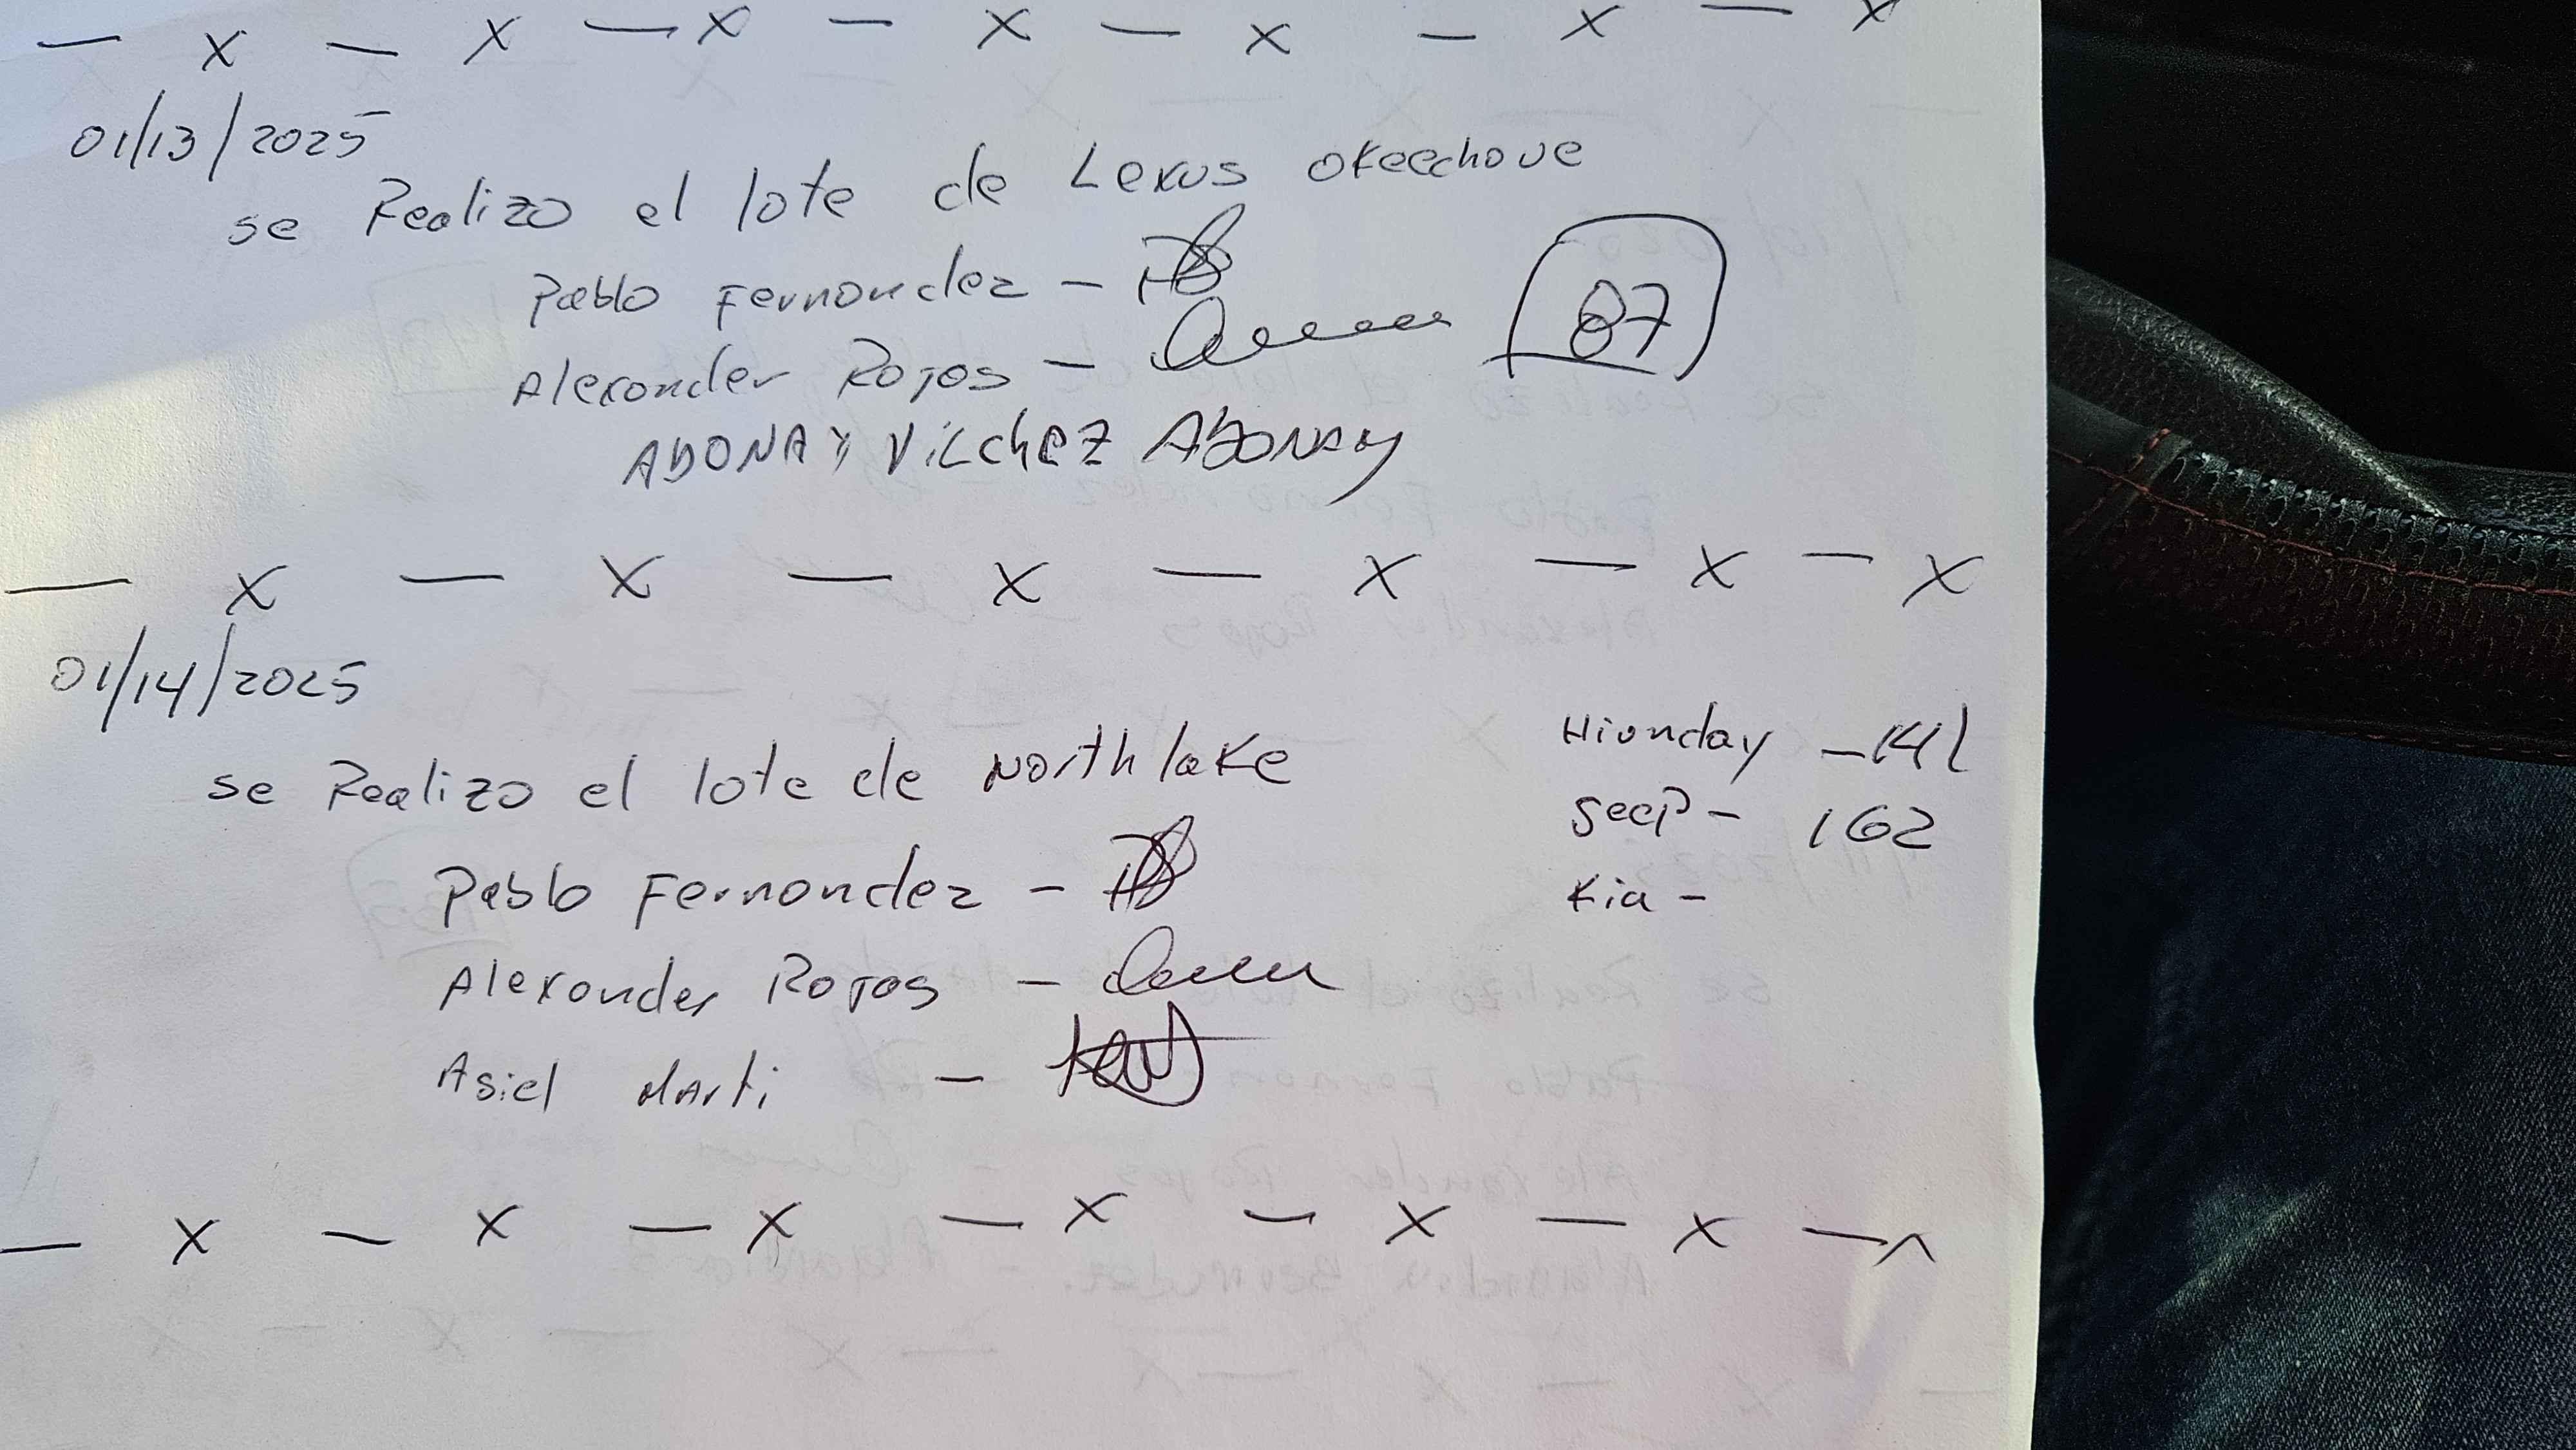 — x — x — x — x — x — x — x
01/13/2025
se Realizo el lote de Lexus okeechove
Pablo Fernandez —
Alexander Rojas —
87
ADONAY Vilchez ADONAY
— x — x — x — x — x — x
01/14/2025
se Realizo el lote de Northlake
Pablo Fernandez —
Alexander Rojas —
Asiel Marti —
Hiunday — 141
Seep — 162
Kia —
— x — x — x — x — x — x —